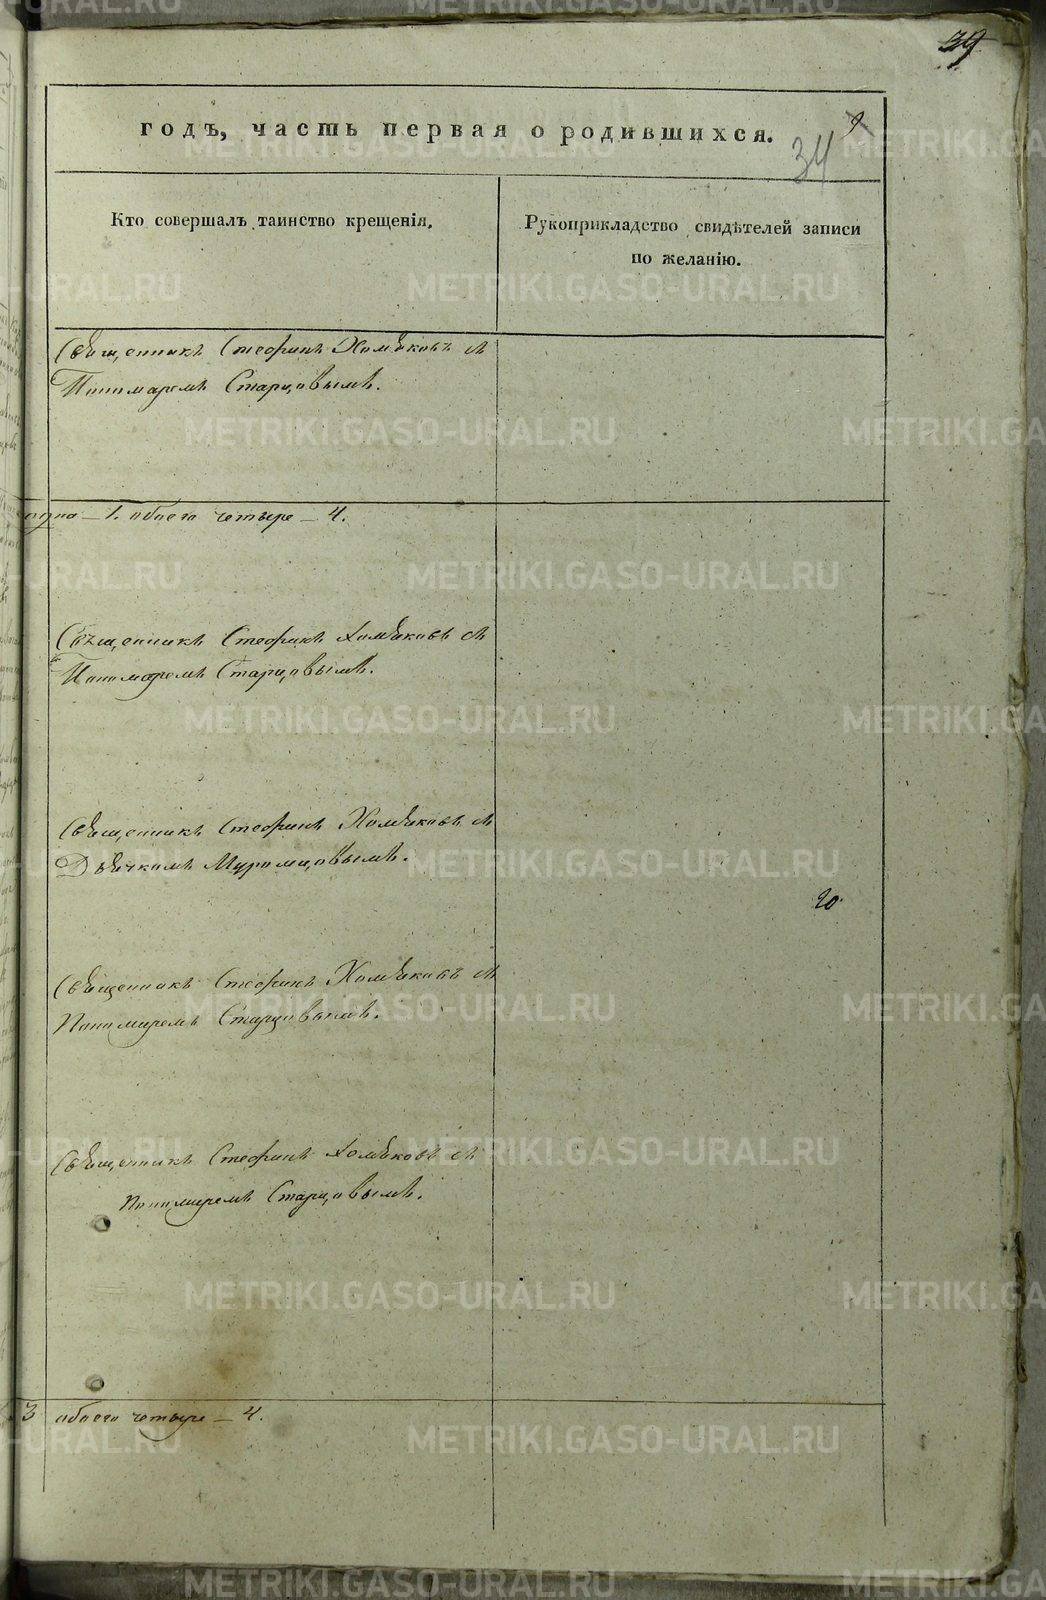 39
годъ, часть первая о родившихся.
9
34
Кто совершалъ таинство крещенія.
Рукоприкладство свидѣтелей записи
по желанію.
Священникъ Стефанъ Хомяковъ съ
Пономаремъ Старцовымъ.
одна – 1. обоего четыре – 4.
Священникъ Стефанъ Хомяковъ съ
Пономаремъ Старцовымъ.
Священникъ Стефанъ Хомяковъ съ
Дьячкомъ Муромцовымъ.
20
Священникъ Стефанъ Хомяковъ съ
Пономаремъ Старцовымъ.
Священникъ Стефанъ Хомяковъ съ
пономаремъ Старцовымъ.
3 обоего четыре – 4.
METRIKI.GASO-URAL.RU